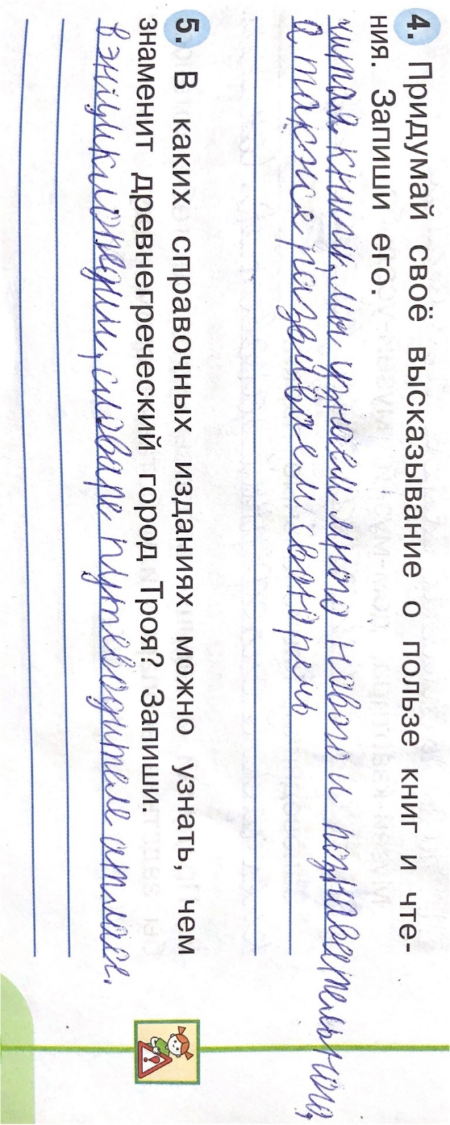 4. Придумай своё высказывание о пользе книг и чте-
ния. Запиши его.
читая, книги, мы узнаем много нового и познавательного,
а также развиваем свою речь
5. В каких справочных изданиях можно узнать, чем
знаменит древнегреческий город Троя? Запиши.
в энциклопедии, словаре путеводителе атласе.